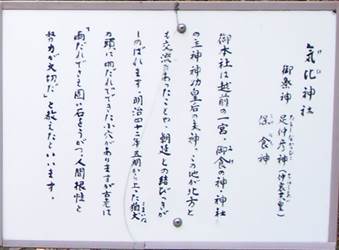 気比神社
けひ
御祭神 足仲彦命(仲哀天皇)
保食神
御本社は越前の一宮、御食の神 神社
の主神神功皇后の夫神、この地が北方と
も交流のあったことや、朝廷との結びつきが
しのばれます。明治四十二年五朔から上った狛犬
こまいぬ
の頭に雨だれでできた穴がありますが古老は
「雨だれでさえ固い石をうがつ、人間根性と
努力が大切だ」と教えたといいます。